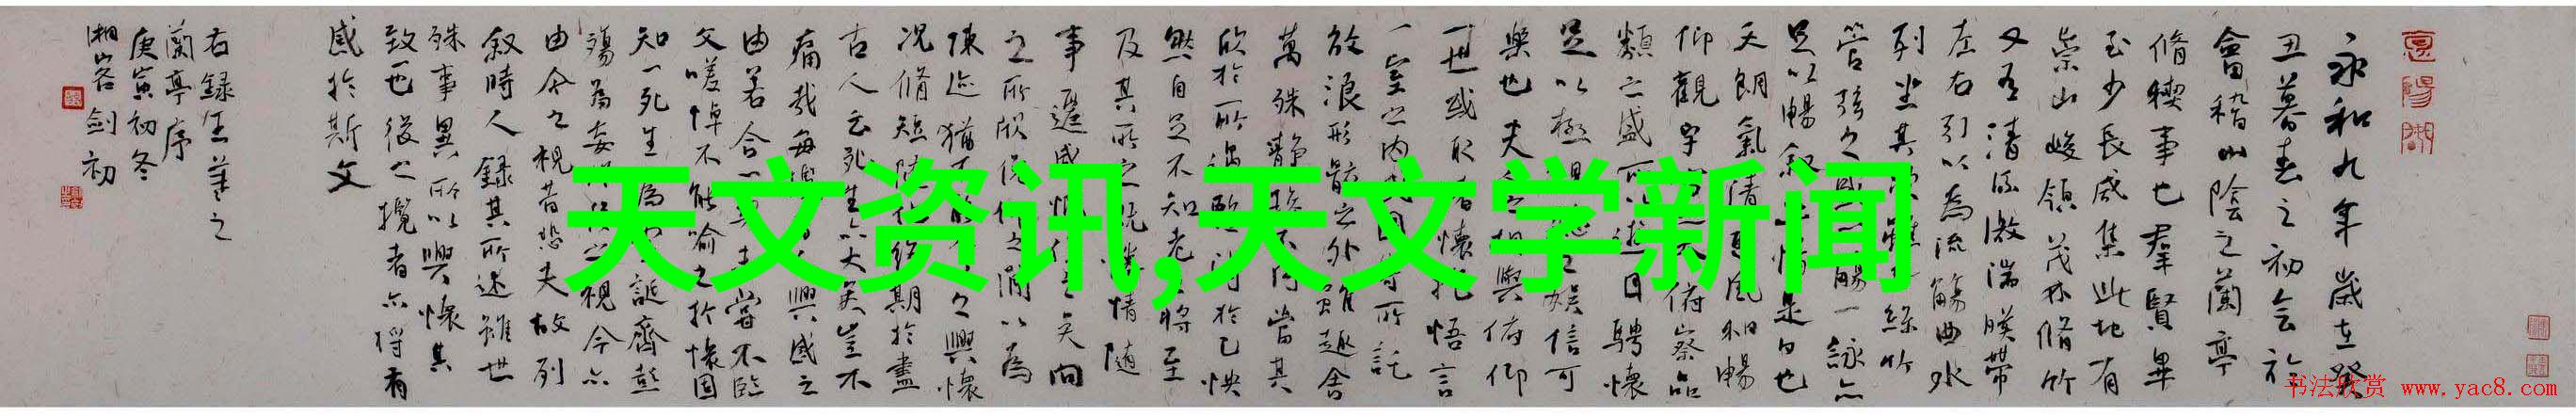 永和九年歲在癸
丑暮春之初會於
會稽山陰之蘭亭
脩稧事也羣賢畢
至少長咸集此地有
崇山峻領茂林脩竹
又有清流激湍暎帶
左右引以為流觴曲水
列坐其次雖無絲竹
管弦之盛一觴一詠亦
足以暢敘幽情是日也
天朗氣清惠風和暢
仰觀宇宙之大俯察品
類之盛所以遊目騁懷
足以極視聽之娛信可
樂也夫人之相與俯仰
一世或取諸懷抱悟言
一室之內或因寄所託
放浪形骸之外雖趣舍
萬殊靜躁不同當其
欣於所遇暫得於己快
然自足不知老之將至
及其所之既惓情隨
事遷感慨係之矣向
之所欣俛仰之間以為
陳迹猶不能不以之興懷
況脩短隨化終期於盡
古人云死生亦大矣豈不
痛哉每攬昔人興感之
由若合一契未嘗不臨
文嗟悼不能喻之於懷固
知一死生為虛誕齊彭
殤為妄作後之視今亦
由今之視昔悲夫故列
叙時人錄其所述雖世
殊事異所以興懷其
致一也後之攬者亦將有
感於斯文
右録王羲之
蘭亭序
庚寅初冬
湘客劍初
天文资讯,天文学新闻
书法欣赏 www.yac8.com